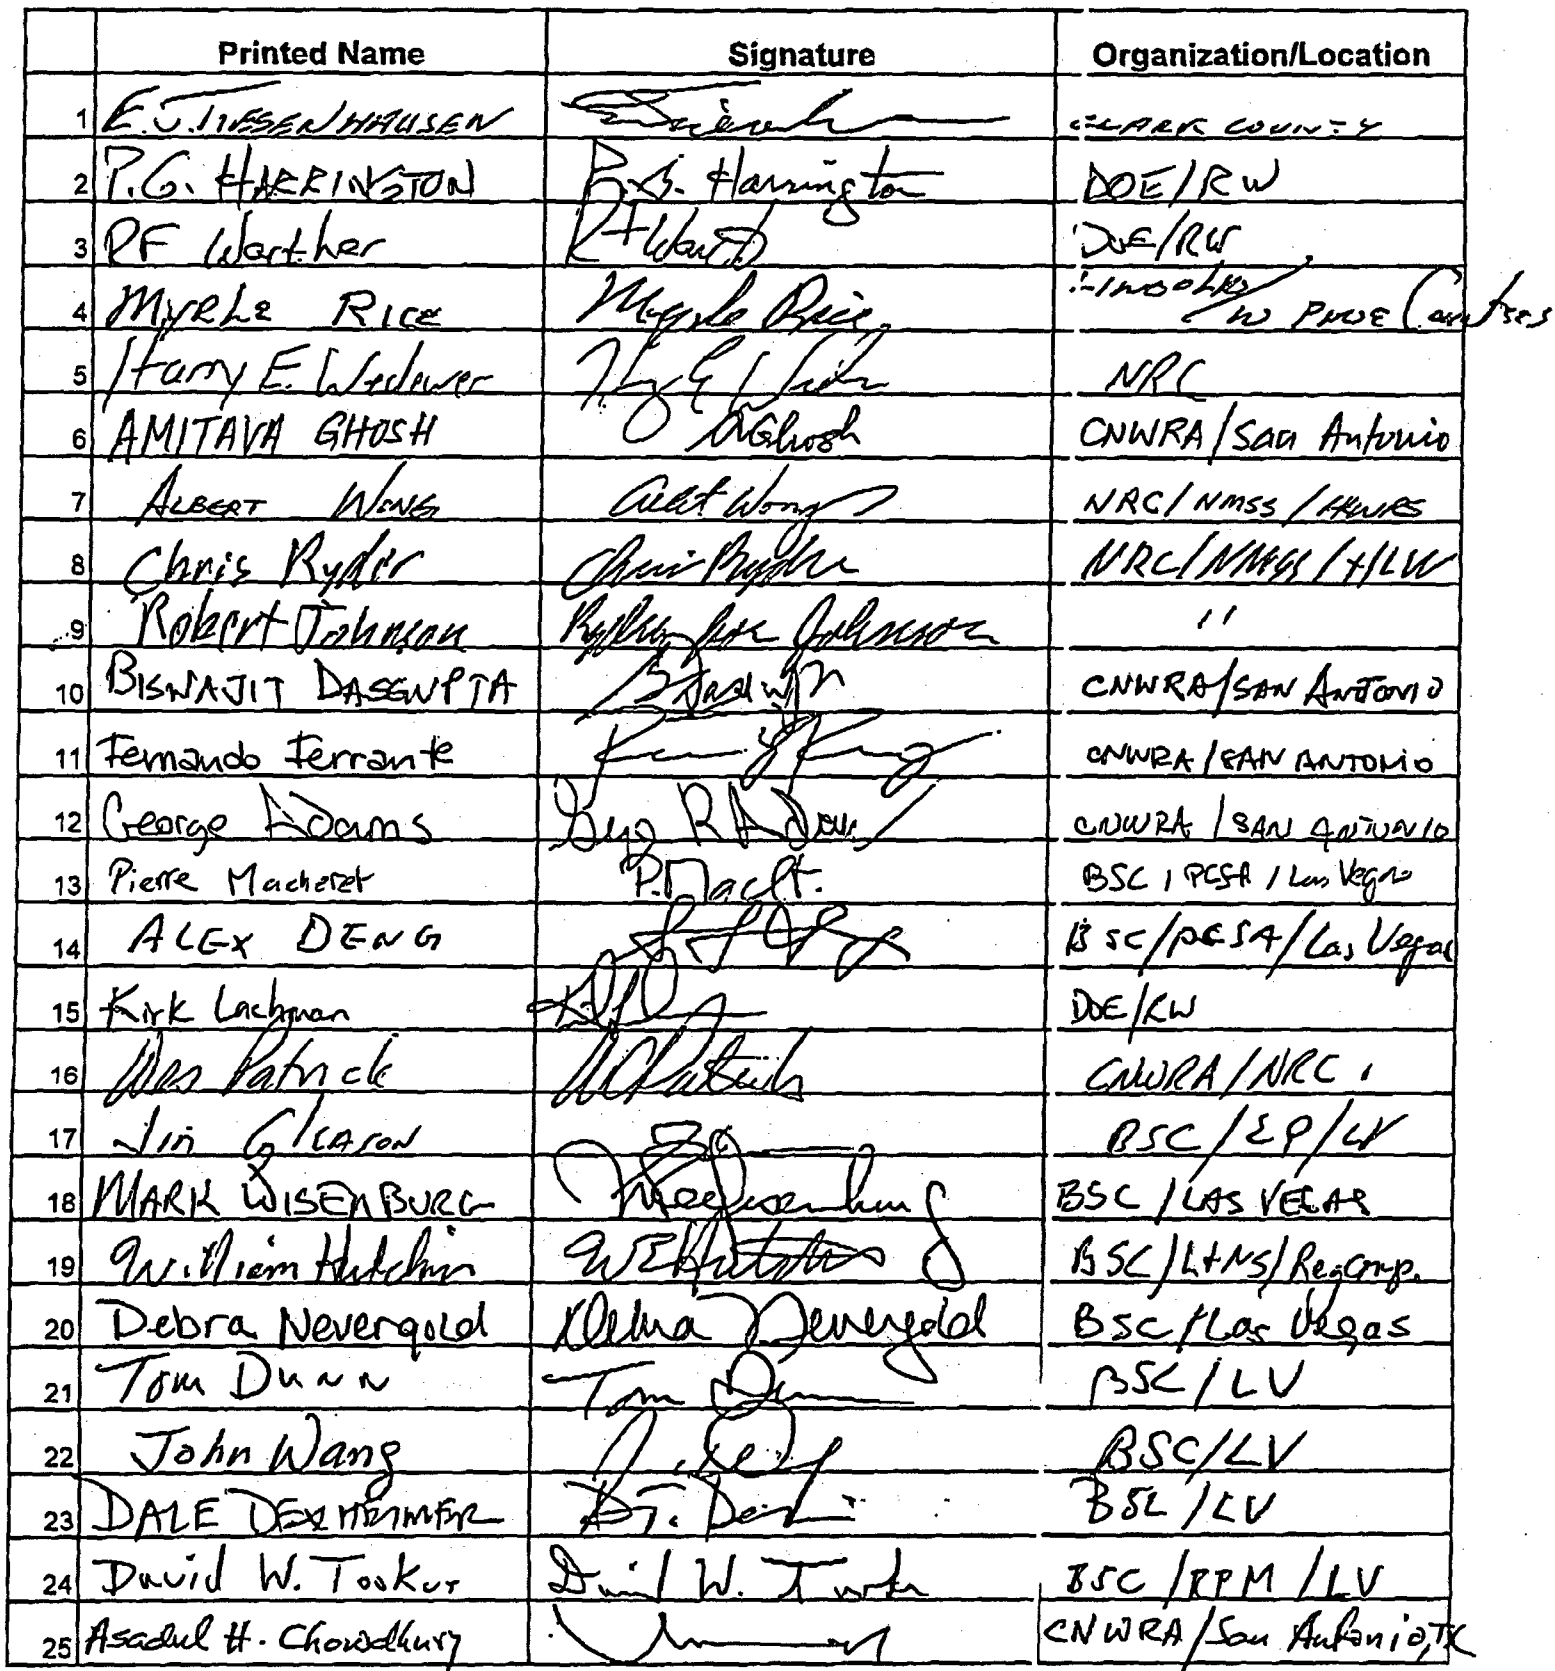 Printed Name Signature Organization/Location
1 E.J. TIESENHAUSEN CLARK COUNTY
2 P.G. HARRINGTON P.G. Harrington DOE/RW
3 RF Warther DOE/RW
4 MYRLE RICE Myrle Rice
5 Harry E. Wedewer NRC
6 AMITAVA GHOSH AGhosh CNWRA/San Antonio
7 ALBERT WONG Albert Wong NRC/NMSS
8 Chris Ryder Chris Ryder NRC/NMSS/HLW
9 Robert Johnson Johnson "
10 BISWAJIT DASGUPTA CNWRA/SAN ANTONIO
11 Fernando Ferrante CNWRA/SAN ANTONIO
12 George Adams CNWRA / SAN ANTONIO
13 Pierre Macheret BSC / PCSA / Las Vegas
14 ALEX DENG BSC/PCSA/Las Vegas
15 Kirk Lachman DOE/RW
16 Wes Patrick CNWRA/NRC
17 Jim GLEASON BSC/EP/LV
18 MARK WISENBURG BSC / LAS VEGAS
19 William Hutchins BSC/L+NS/Reg Comp.
20 Debra Nevergold Debra Nevergold BSC/Las Vegas
21 Tom DUNN Tom BSC/LV
22 John Wang BSC/LV
23 DALE DEXHEIMER BSC/LV
24 David W. Tooker David W. Tooker BSC /RPM /LV
25 Asadul H. Chowdhury CNWRA/San Antonio, TX